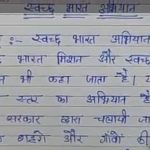 स्वच्छ भारत अभियान
:- स्वच्छ भारत अभियान
भारत मिशन और स्वच्छ
भी कहा जाता है।
स्तर का अभियान है
सरकार द्वारा चलाया जा
और गाँवों की